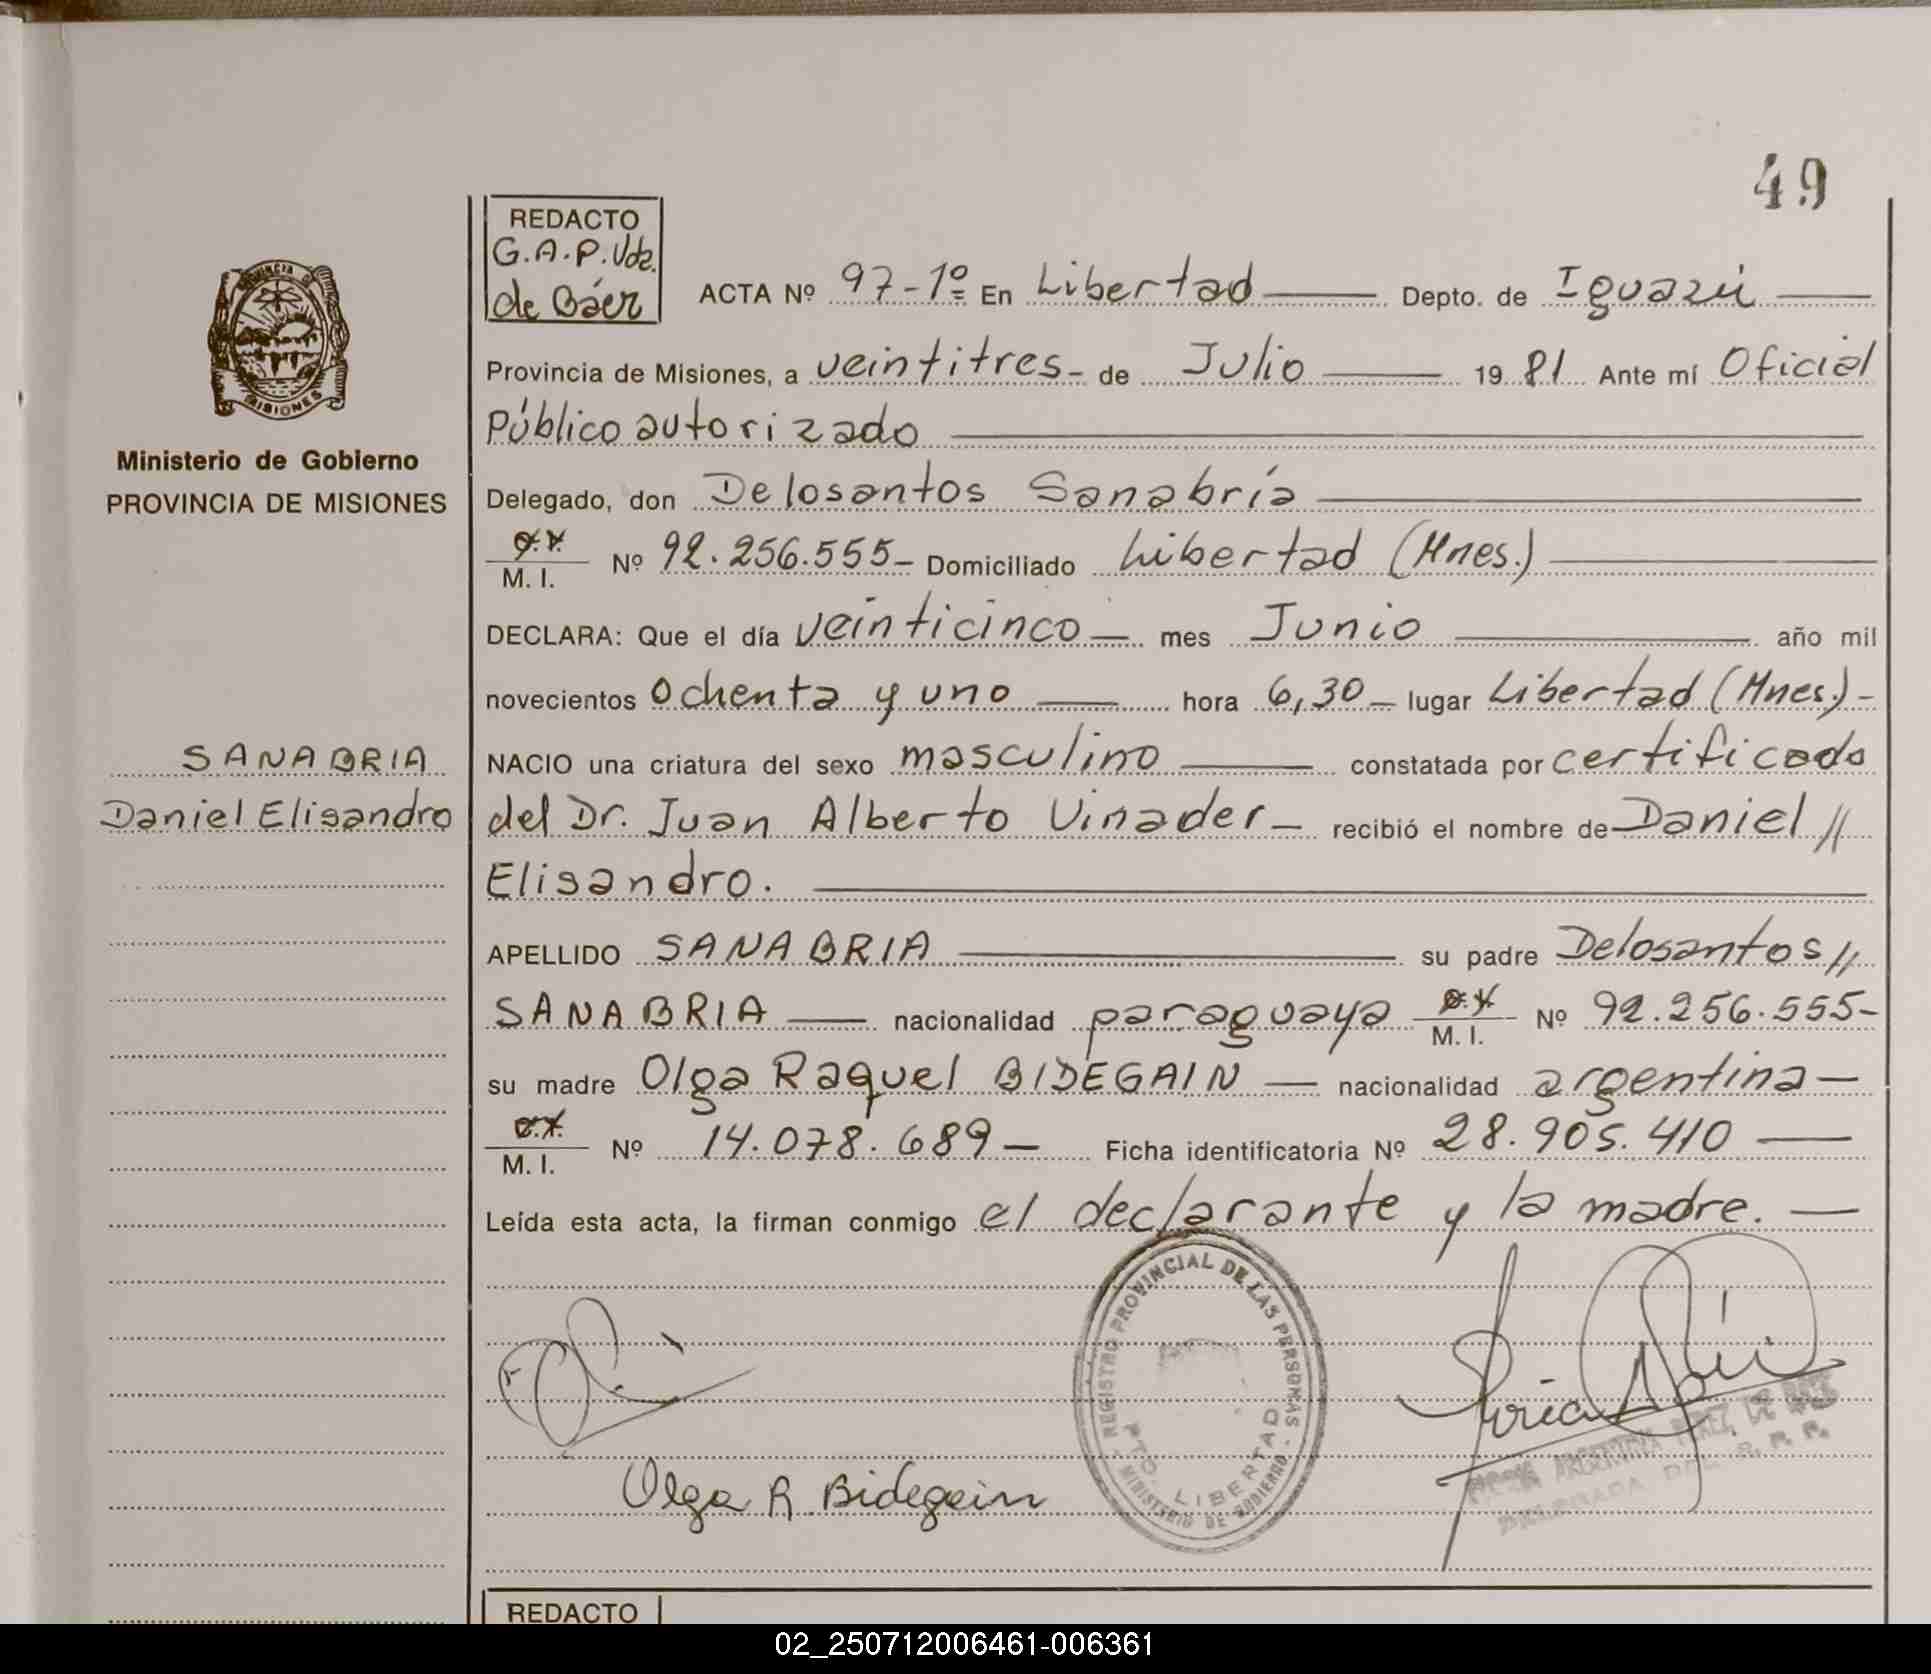 49
REDACTO
G.A.P. Vda.
de Báez
ACTA Nº 97-1º En Libertad Depto. de Iguazú
Provincia de Misiones, a veintitres de Julio 1981 Ante mí Oficial
Público autorizado
Delegado, don Delosantos Sanabria
M. I. Nº 92.256.555 Domiciliado Libertad (Mnes.)
DECLARA: Que el día veinticinco mes Junio año mil
novecientos ochenta y uno hora 6,30 lugar Libertad (Mnes.)
NACIO una criatura del sexo masculino constatada por certificado
del Dr. Juan Alberto Vinader recibió el nombre de Daniel //
Elisandro.
APELLIDO SANABRIA su padre Delosantos //
SANABRIA nacionalidad paraguaya M. I. Nº 92.256.555
su madre Olga Raquel BIDEGAIN nacionalidad argentina
M. I. Nº 14.078.689 Ficha identificatoria Nº 28.905.410
Leída esta acta, la firman conmigo el declarante y la madre.
PROVINCIA DE
MISIONES
Ministerio de Gobierno
PROVINCIA DE MISIONES
SANABRIA
Daniel Elisandro
REGISTRO PROVINCIAL DE LAS PERSONAS
PTO. LIBERTAD
MINISTERIO DE GOBIERNO
Olga R. Bidegain
ARGENTINA PEREZ
DELEGADA
REDACTO
02_250712006461-006361